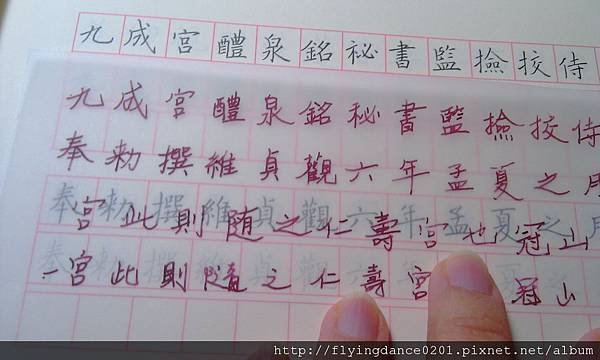 九成宮醴泉銘秘書監撿挍侍
九成宮醴泉銘秘書監撿挍侍
奉勅撰維貞觀六年孟夏之月
奉勅撰維貞觀六年孟夏之月
宮此則随之仁壽宮也冠山
宮此則隨之仁壽宮冠山
http://flyingdance0201.pixnet.net/album